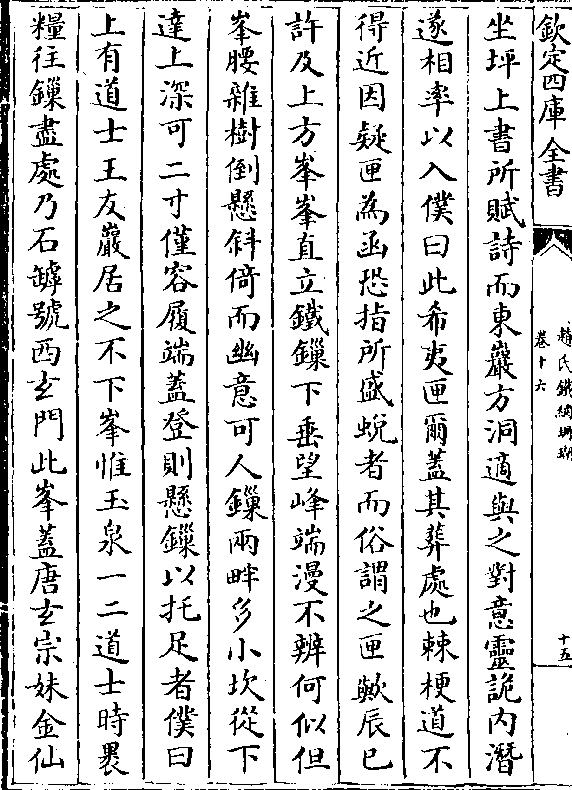 欽定四庫全書
趙氏鐵網珊瑚
卷十六
十五
坐坪上書所賦詩而東巖方洞適與之對意靈詭内潛
遂相率以入僕曰此希夷匣爾蓋其葬處也棘梗道不
得近因疑匣為函恐指所盛蜕者而俗謂之匣歟辰巳
許及上方峯峯直立鐵鏁下垂望峰端漫不辨何似但
峯腰雜樹倒懸斜倚而幽意可人鏁兩畔多小坎從下
達上深可二寸僅容履端蓋登則懸鏁以托足者僕曰
上有道士王友巖居之不下峯惟玉泉一二道士時褁
糧往鏁盡處乃石罅號西𤣥門此峯蓋唐𤣥宗妹金仙